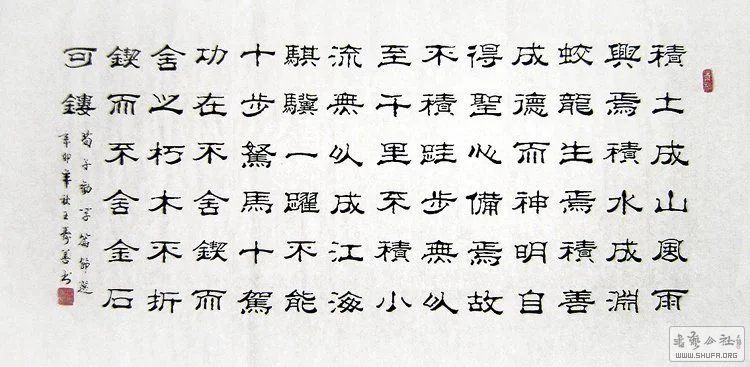 積土成山風雨
興焉積水成淵
蛟龍生焉積善
成德而神明自
得聖心備焉故
不積跬步無以
至千里不積小
流無以成江海
騏驥一躍不能
十步駑馬十駕
功在不舍鍥而
舍之朽木不折
鍥而不舍金石
可鏤
荀子勸学篇節選
辛卯年秋王壽善书
書藝公社
WWW.SHUFA.ORG